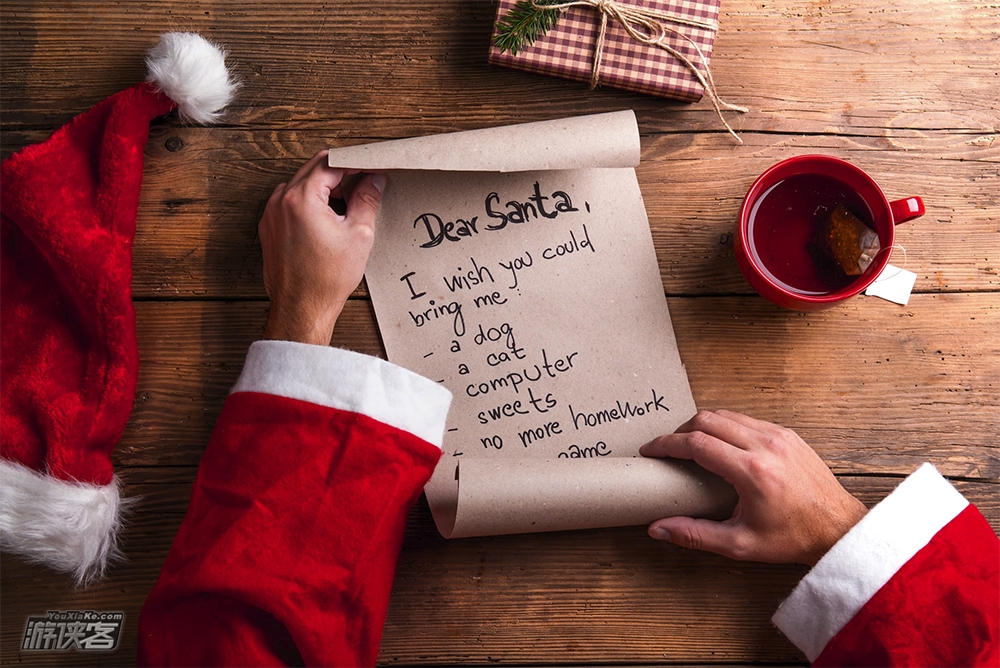 Dear Santa,
I wish you could
bring me:
- a dog
- a cat
computer
- sweets
- no more homework
game
YouXiaKe.com
游侠客